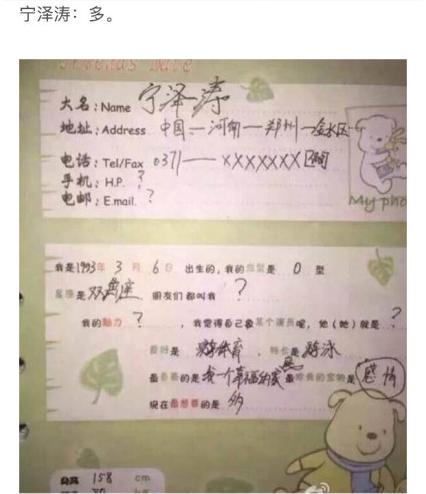 宁泽涛：多。
大名：Name 宁泽涛
地址：Address 中国—河南—郑州—金水区
电话：Tel/Fax 0371——XXXXXXX
手机：H.P. ?
电邮：E.mail. ?
My pho
我是1993年 3 月 6 日 出生的，我的血型是 O 型
星座是双鱼座 朋友们都叫我 ?
我的魅力 ? ，我觉得自己象某个演员呢，他（她）就是 ?
爱好是 体育 ，特长是 游泳
最喜喜的是 我 一个幸福的家 最珍贵的宝物是 感情
现在最想要的是
身高 158 cm